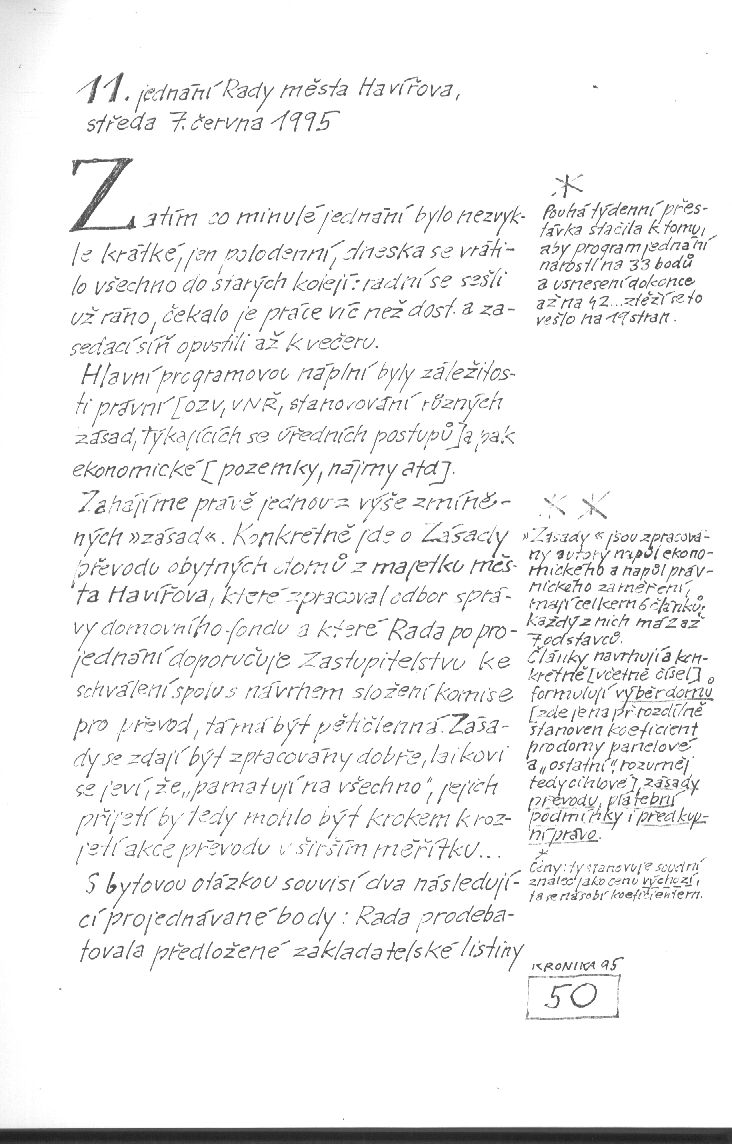 11. jednání Rady města Havířova,
středa 7. června 1995
Zatím co minulé jednání bylo nezvyk-
le krátké, jen polodenní, dneska se vráti-
lo všechno do starých kolejí: radní se sešli
už ráno, čekalo je práce víc než dost a za-
sedací síň opustili až k večeru.
Hlavní programovou náplní byly záležitos-
ti právní [OZV, VNŘ, stanovování různých
zásad, týkajících se úředních postupů] a pak
ekonomické [pozemky, nájmy atd].
Zahájíme právě jednou z výše zmíně-
ných »zásad«. Konkretně jde o Zásady
převodu obytných domů z majetku měs-
ta Havířova, které zpracoval odbor sprá-
vy domovního fondu a které Rada po pro-
jednání doporučuje Zastupitelstvu ke
schválení spolu s návrhem složení komise
pro převod, ta má být pětičlenná. Zása-
dy se zdají být zpracovány dobře, laikovi
se jeví, že „pamatují na všechno“, jejich
přijetí by tedy mohlo být krokem k roz-
jetí akce převodu v širším měřítku...
S bytovou otázkou souvisí dva následují-
cí projednávané body: Rada prodeba-
tovala předložené zakladatelské listiny
*
Pouhá týdenní přes-
távka stačila k tomu,
aby program jednání
narostl na 33 bodů
a usnesení dokonce
až na 42... ztěží se to
vešlo na 19 stran.
* *
»Zásady« jsou zpracová-
ny autory napůl ekono-
mického a napůl práv-
nického zaměření,
mají celkem 6 článků,
každý z nich má 2 až
7 odstavců.
Články navrhují a kon-
kretně [včetně čísel]
formulují výběr domu
[zde je na př. rozdílně
stanoven koeficient
pro domy panelové
a „ostatní“, rozuměj
tedy cihlové], zásady
převodu, platební
podmínky i předkup-
ní právo.
*
Ceny: ty stanovuje soudní
znalec jako cenu výchozí,
ta se násobí koeficientem.
KRONIKA 95
50